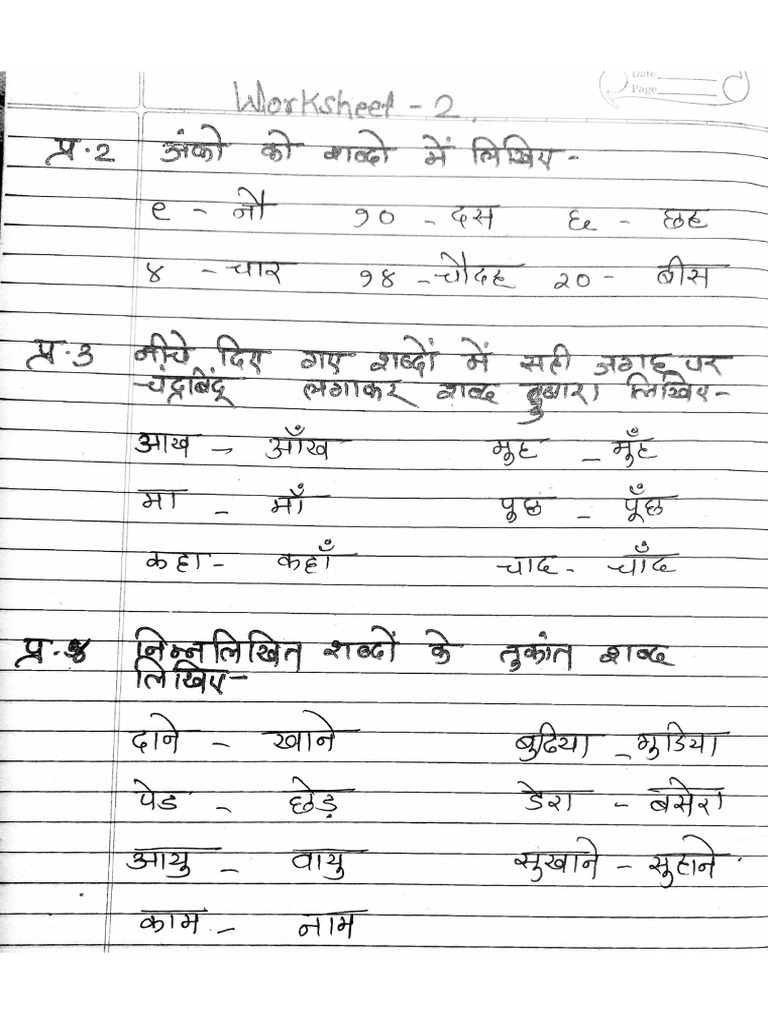 Date
Page
Worksheet - 2
प्र.2 अंको को शब्दो में लिखिए -
९ - नौ १० - दस ६ - छह
४ - चार १४ - चौदह २० - बीस
प्र.3 नीचे दिए गए शब्दों में सही जगह पर
चंद्रबिंदू लगाकर शब्द दुबारा लिखिए -
आख - आँख मुह - मुँह
मा - माँ पुछ - पूँछ
कहा - कहाँ चाद - चाँद
प्र.४ निम्नलिखित शब्दों के तुकांत शब्द
लिखिए -
दाने - खाने बुढिया - गुडिया
पेड - छेड़ डेरा - बसेरा
आयु - वायु सुखाने - सुहाने
काम - नाम